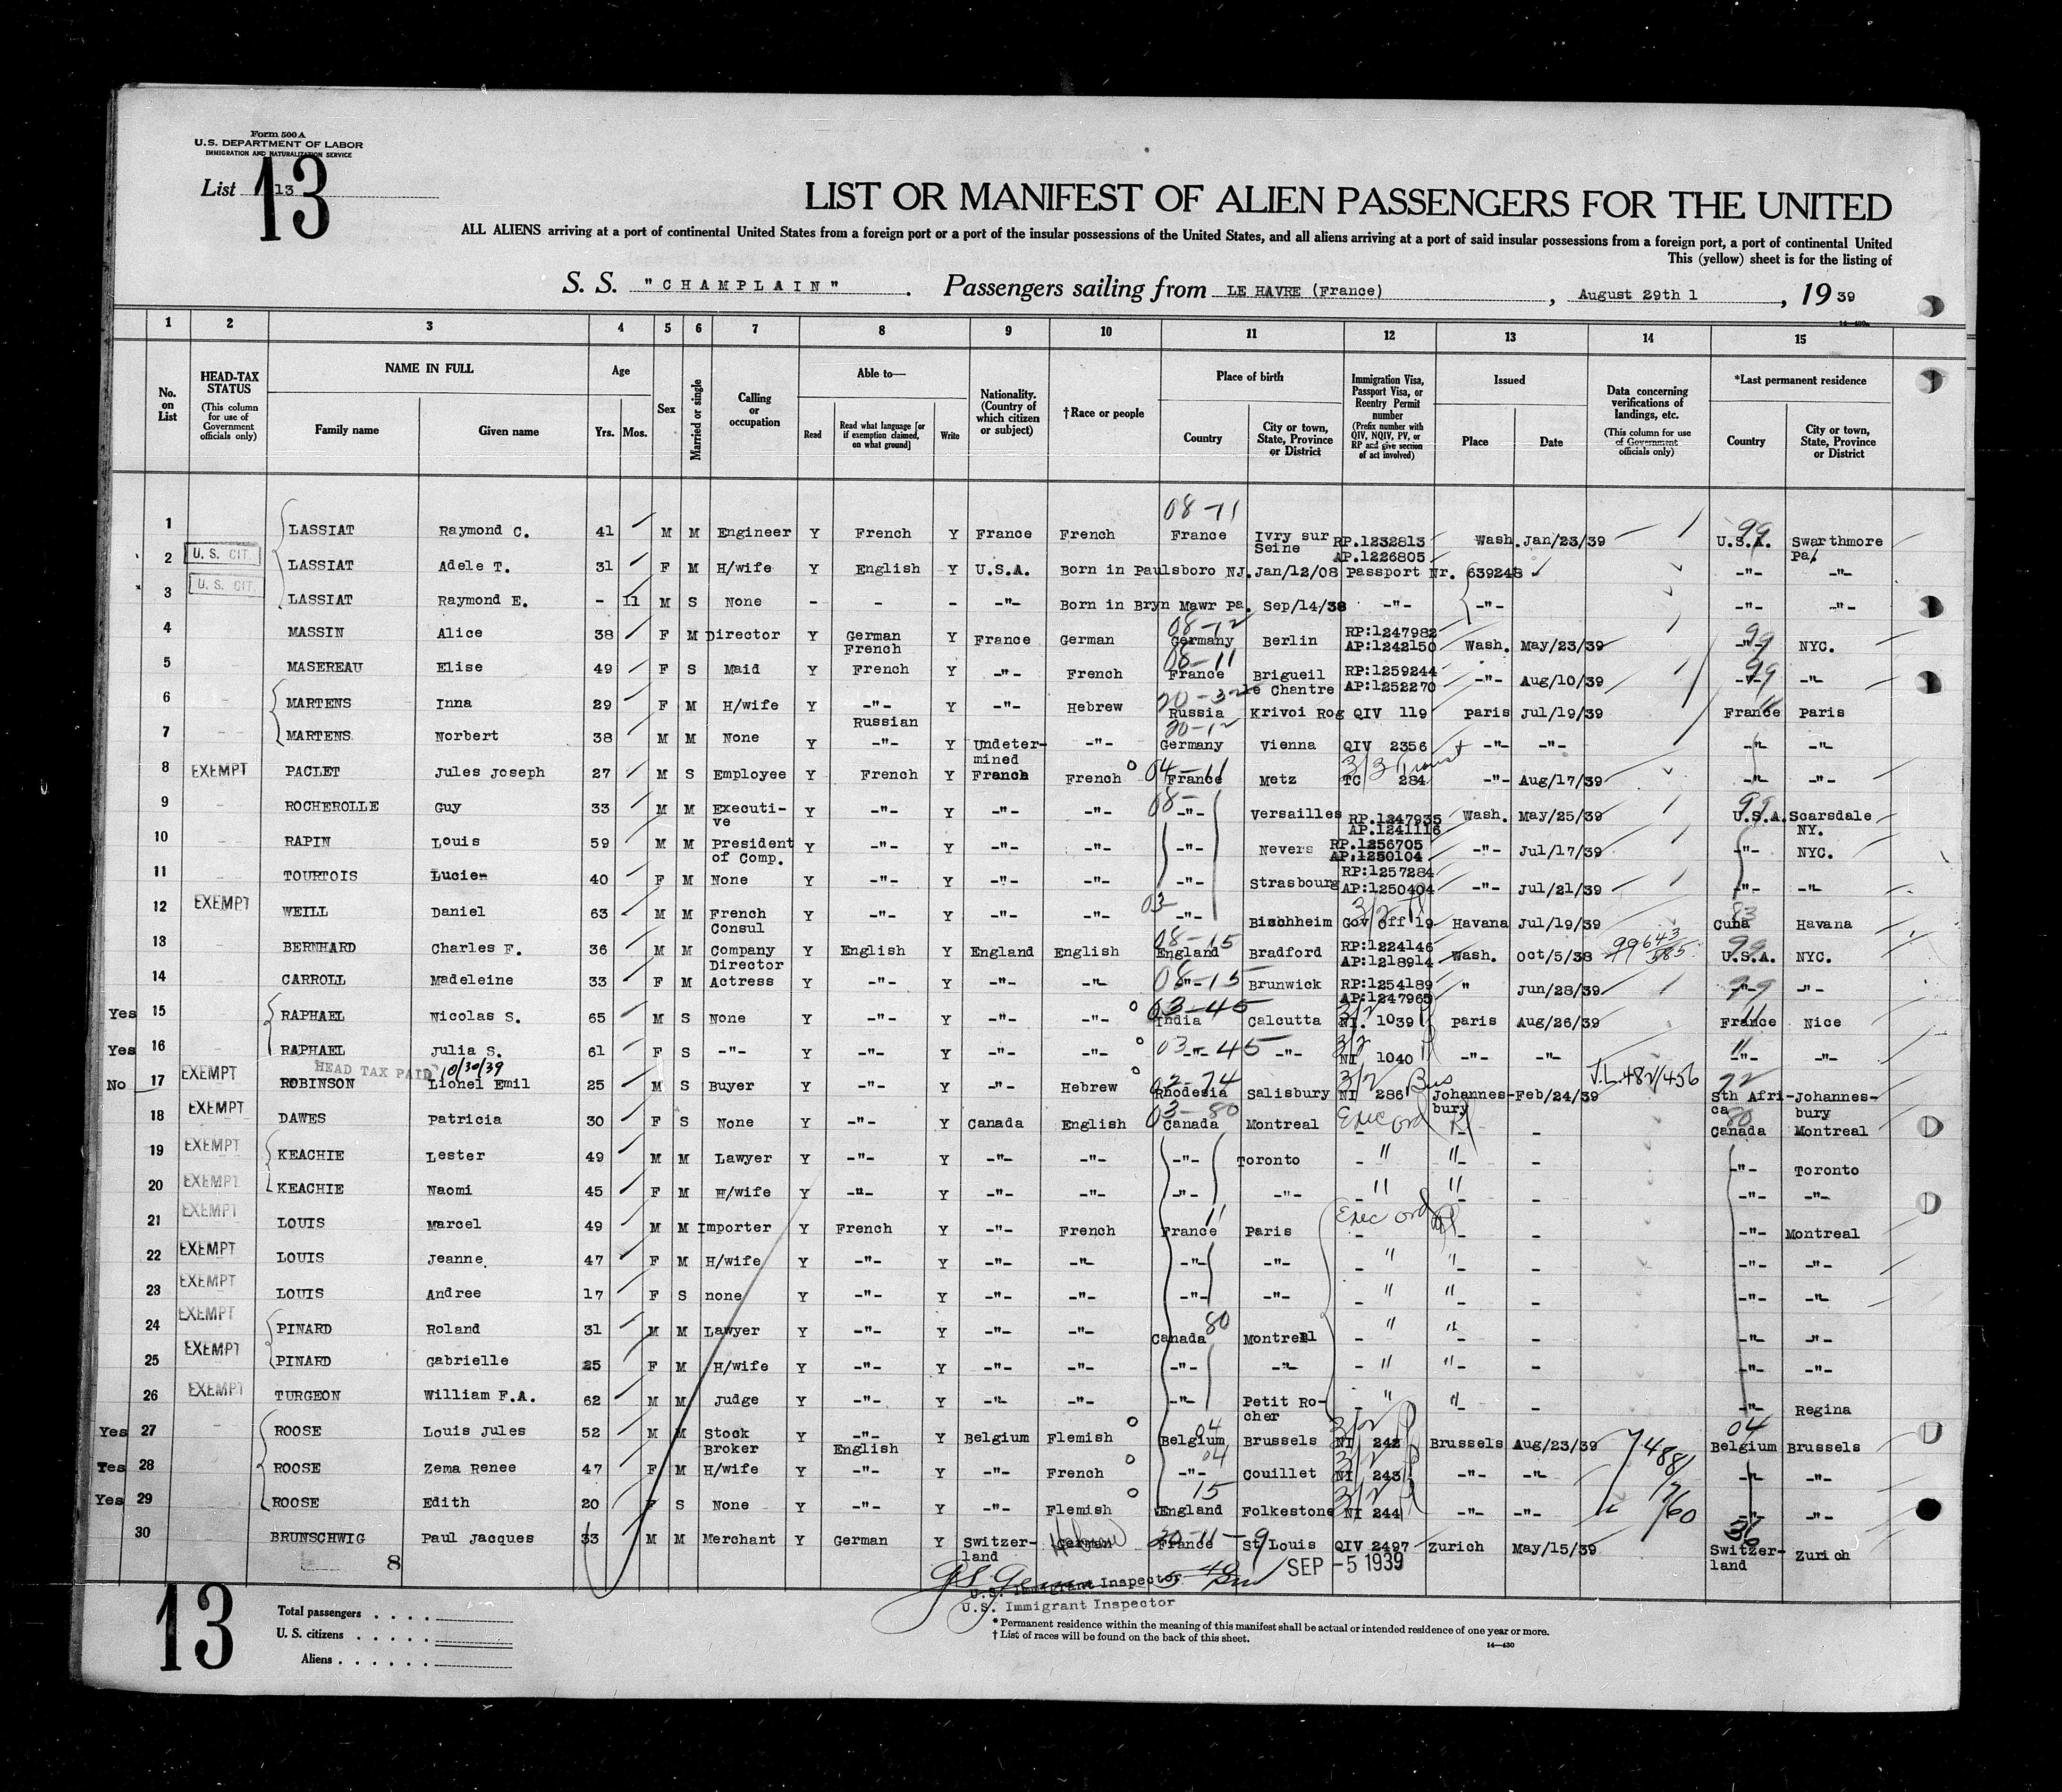 Form 500 A
U.S. DEPARTMENT OF LABOR
IMMIGRATION AND NATURALIZATION SERVICE
List 13
13
LIST OR MANIFEST OF ALIEN PASSENGERS FOR THE UNITED
ALL ALIENS arriving at a port of continental United States from a foreign port or a port of the insular possessions of the United States, and all aliens arriving at a port of said insular possessions from a foreign port, a port of continental United
This (yellow) sheet is for the listing of
S. S. "CHAMPLAIN" . Passengers sailing from LE HAVRE (France) , August 29th 1 , 19 39
1 2 3 4 5 6 7 8 9 10 11 12 13 14 15
No. on List
HEAD-TAX STATUS (This column for use of Government officials only)
NAME IN FULL Family name Given name
Age Yrs. Mos.
Sex
Married or single
Calling or occupation
Able to— Read Read what language [or if exemption claimed, on what ground] Write
Nationality. (Country of which citizen or subject)
†Race or people
Place of birth Country City or town, State, Province or District
Immigration Visa, Passport Visa, or Reentry Permit number (Prefix number with QIV, NQIV, PV, or RP and give section of act involved)
Issued Place Date
Data concerning verifications of landings, etc. (This column for use of Government officials only)
*Last permanent residence Country City or town, State, Province or District
1 LASSIAT Raymond C. 41 M M Engineer Y French Y France French 08-11 France Ivry sur Seine RP.1232813 AP.1226805 Wash. Jan/23/39 99 U.S.A. Swarthmore Pa.
2 U. S. CIT. LASSIAT Adele T. 31 F M H/wife Y English Y U.S.A. Born in Paulsboro NJ. Jan/12/08 Passport Nr. 639248 -"- -"-
3 U. S. CIT. LASSIAT Raymond E. - 11 M S None - - - -"- Born in Bryn Mawr Pa. Sep/14/38 -"- -"- -"- -"-
4 MASSIN Alice 38 F M Director Y German French Y France German 08-12 Germany Berlin RP:1247982 AP:1242150 Wash. May/23/39 99 -"- NYC.
5 MASEREAU Elise 49 F S Maid Y French Y -"- French 08-11 France Brigueil le Chantre RP:1259244 AP:1252270 -"- Aug/10/39 99 -"- -"-
6 MARTENS Inna 29 F M H/wife Y -"- Russian Y -"- Hebrew 20-32 Russia Krivoi Rog QIV 119 Paris Jul/19/39 11 France Paris
7 MARTENS Norbert 38 M M None Y -"- Y Undetermined -"- 20-12 Germany Vienna QIV 2356 -"- -"- -"- -"-
8 EXEMPT PACLET Jules Joseph 27 M S Employee Y French Y France French 04-11 France Metz 3/3 Transit TC 284 -"- Aug/17/39 -"- -"-
9 ROCHEROLLE Guy 33 M M Executive Y -"- Y -"- -"- 08- -"- Versailles RP.1247935 AP.1241116 Wash. May/25/39 99 U.S.A. Scarsdale NY.
10 RAPIN Louis 59 M M President of Comp. Y -"- Y -"- -"- -"- Nevers RP.1256705 AP.1250104 -"- Jul/17/39 -"- NYC.
11 TOURTOIS Lucie 40 F M None Y -"- Y -"- -"- -"- Strasbourg RP:1257284 AP:1250404 -"- Jul/21/39 -"- -"-
12 EXEMPT WEILL Daniel 63 M M French Consul Y -"- Y -"- -"- 03 -"- Bischheim 3/2 Gov Off 19 Havana Jul/19/39 83 Cuba Havana
13 BERNHARD Charles F. 36 M M Company Director Y English Y England English 08-15 England Bradford RP:1224146 AP:1218914 Wash. Oct/5/38 99643/585 99 U.S.A. NYC.
14 CARROLL Madeleine 33 F M Actress Y -"- Y -"- -"- 08-15 -"- Brunwick RP:1254189 AP:1247965 " Jun/28/39 99 -"- -"-
Yes 15 RAPHAEL Nicolas S. 65 M S None Y -"- Y -"- -"- 03-45 India Calcutta 3/2 NI. 1039 Paris Aug/26/39 11 France Nice
Yes 16 RAPHAEL Julia S. 61 F S -"- Y -"- Y -"- -"- 03-45 -"- -"- 3/2 NI 1040 -"- -"- 11 -"- -"-
HEAD TAX PAID 10/30/39
No 17 EXEMPT ROBINSON Lionel Emil 25 M S Buyer Y -"- Y -"- Hebrew 02-74 Rhodesia Salisbury 3/2 Bus NI 286 Johannesbury Feb/24/39 T.L.482/456 72 Sth Africa Johannesbury
18 EXEMPT DAWES Patricia 30 F S None Y -"- Y Canada English 03-80 Canada Montreal Exec ord - - 80 Canada Montreal
19 EXEMPT KEACHIE Lester 49 M M Lawyer Y -"- Y -"- -"- -"- Toronto - " "- - -"- Toronto
20 EXEMPT KEACHIE Naomi 45 F M H/wife Y -"- Y -"- -"- -"- -"- - " "- - -"- -"-
21 EXEMPT LOUIS Marcel 49 M M Importer Y French Y -"- French 11 France Paris Exec ord - - -"- Montreal
22 EXEMPT LOUIS Jeanne 47 F M H/wife Y -"- Y -"- -"- -"- -"- - " "- - -"- -"-
23 EXEMPT LOUIS Andree 17 F S none Y -"- Y -"- -"- -"- -"- - " "- - -"- -"-
24 EXEMPT PINARD Roland 31 M M Lawyer Y -"- Y -"- -"- 80 Canada Montreal - " "- - -"- -"-
25 EXEMPT PINARD Gabrielle 25 F M H/wife Y -"- Y -"- -"- -"- -"- - " "- - -"- -"-
26 EXEMPT TURGEON William F.A. 62 M M Judge Y -"- Y -"- -"- -"- Petit Rocher - " "- - -"- Regina
Yes 27 ROOSE Louis Jules 52 M M Stock Broker Y -"- English Y Belgium Flemish 04 Belgium Brussels 3/2 NI 242 Brussels Aug/23/39 04 Belgium Brussels
Yes 28 ROOSE Zema Renee 47 F M H/wife Y -"- Y -"- French 04 -"- Couillet 3/2 NI 243 -"- -"- -"- -"-
Yes 29 ROOSE Edith 20 F S None Y -"- Y -"- Flemish 15 England Folkestone 3/2 NI 244 -"- -"- -"- -"-
30 BRUNSCHWIG Paul Jacques 33 M M Merchant Y German Y Switzerland German Hebrew 20-11-9 France St Louis QIV 2497 Zurich May/15/39 36 Switzerland Zurich
8
SEP -5 1939
U.S. Immigrant Inspector
U.S. Immigrant Inspector
13
Total passengers . . . .
U. S. citizens . . . . .
Aliens . . . . . .
* Permanent residence within the meaning of this manifest shall be actual or intended residence of one year or more.
† List of races will be found on the back of this sheet.
14—430